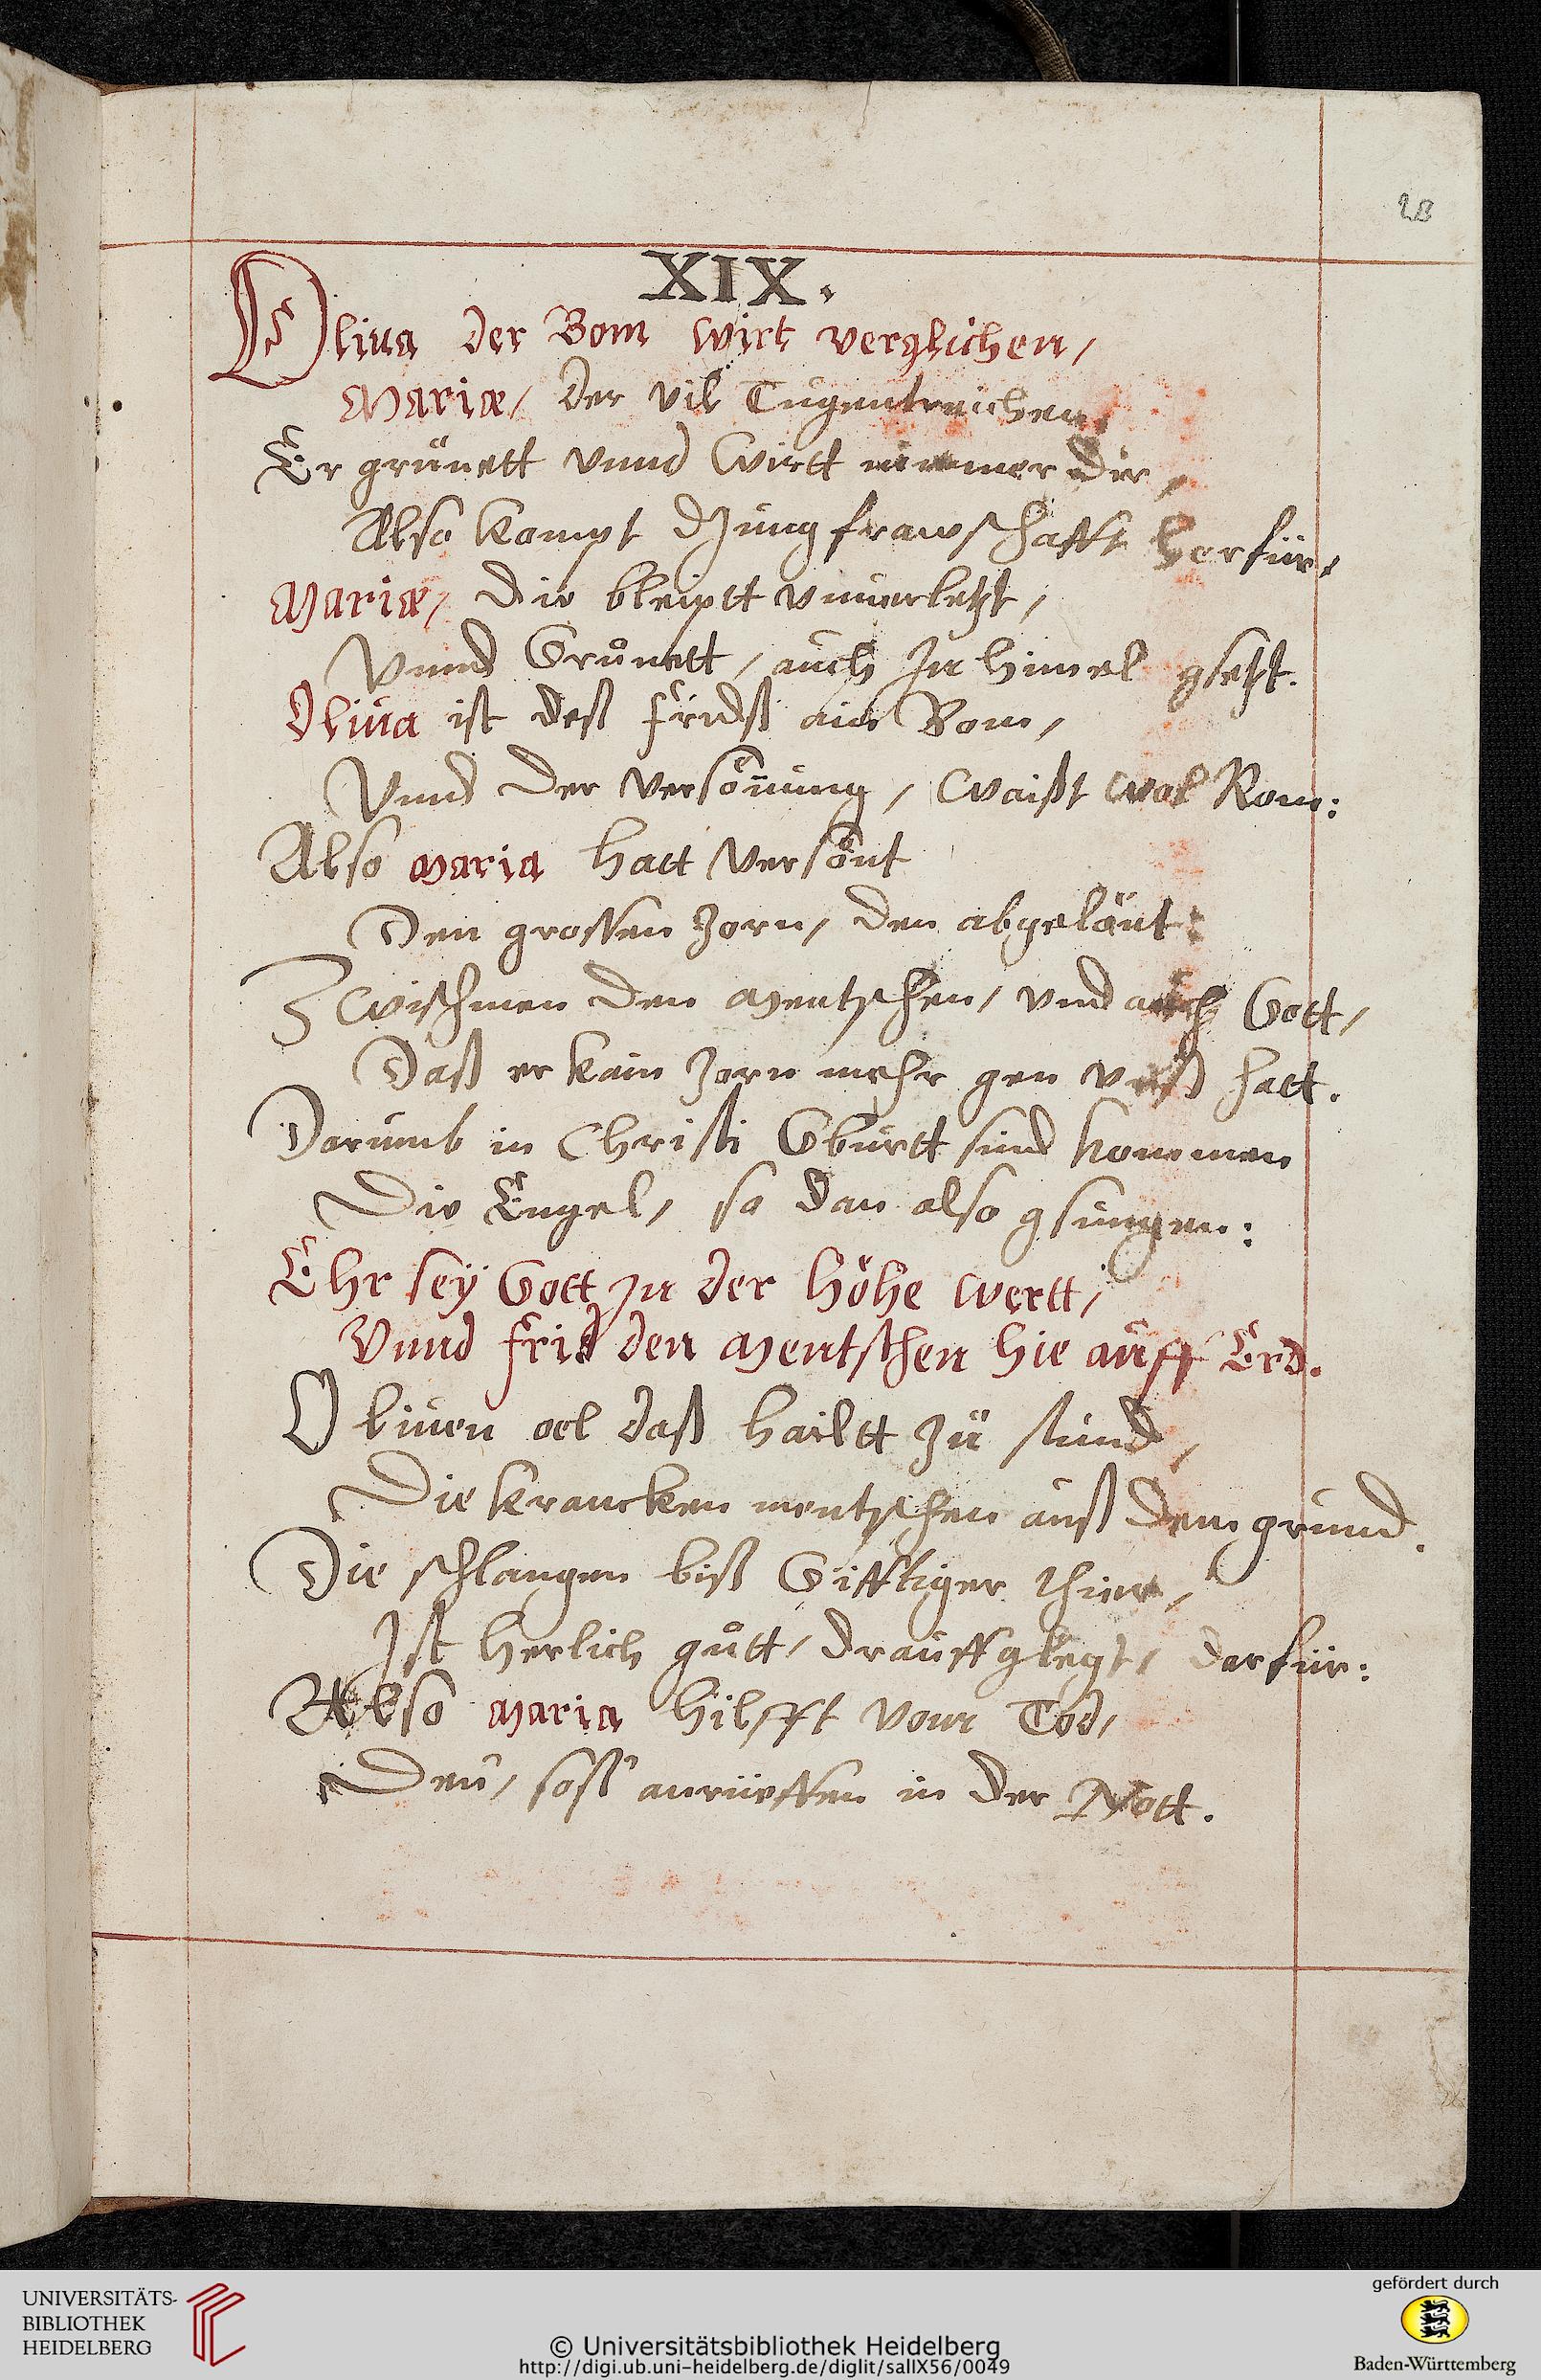 28
XIX.
Oliua der Bom wirt verglichen,
Mariæ, der vil Tugentreichen,
Er grünett vnnd wirtt nimmer dir,
Also kompt dJungfrawschafft herfür,
Mariæ, die bleiptt vnuerletzt,
Vnnd Grůnett, auch Jn himel gsetzt.
Oliua ist deß fridß ain Bom,
Vnnd der versönung, waißt wol Rom:
Also Maria hatt versönt
Den grossen Zorn, den abgelänt:
Zwischmen den Mentschen, vnd auch Gott,
Daß er kain Zorn mehr gen vnß hatt.
Darumb in Christi Gburtt sind kommen
Die Engel, so dan also gsungen:
Ehr sey Gott Jn der höhe wertt,
Vnnd frid den Mentschen hie auff Erd.
Oliuen oel daß hailtt zu stund,
Die krancken mentschen auß dem grund.
Die schlangen biß Gifftiger thier,
Ist herlich gůtt, drauff glegt, darfür:
Also Maria hilfft vom Tod,
Den, soß anrüeffen in der Nott.
UNIVERSITÄTS-
BIBLIOTHEK
HEIDELBERG
© Universitätsbibliothek Heidelberg
http://digi.ub.uni-heidelberg.de/diglit/salIX56/0049
gefördert durch
Baden-Württemberg